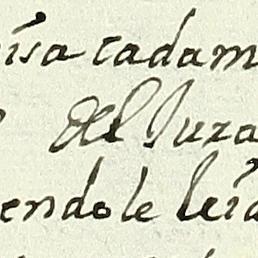 isa cadam
del Juza
endole leid